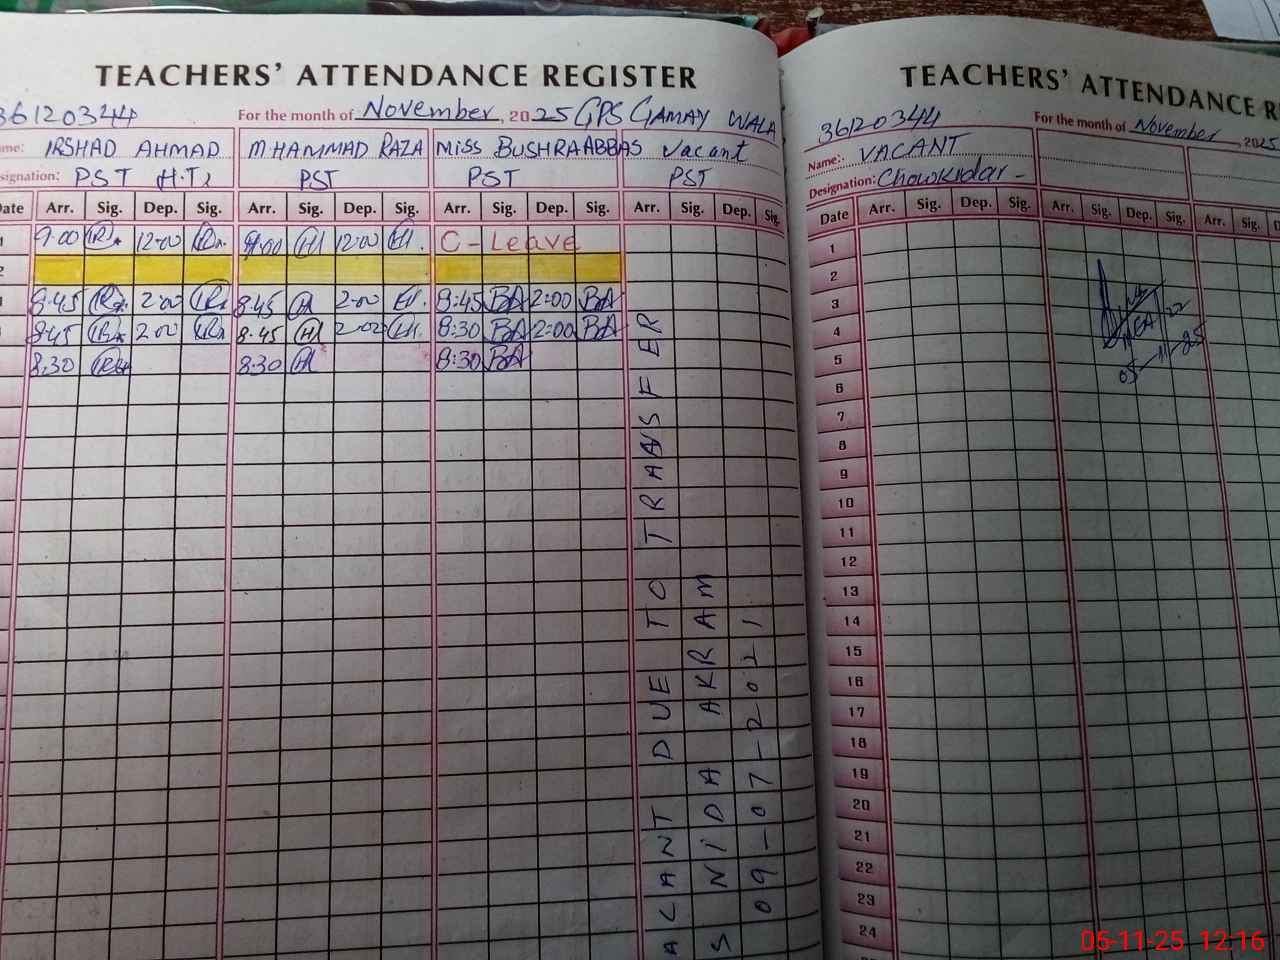 TEACHERS' ATTENDANCE REGISTER
36120344 For the month of November, 2025 GPS GAMAY WALA
ame: IRSHAD AHMAD MHAMMAD RAZA Miss BUSHRA ABBAS Vacant
signation: PST H.T PST PST PST
Date Arr. Sig. Dep. Sig. Arr. Sig. Dep. Sig. Arr. Sig. Dep. Sig. Arr. Sig. Dep. Sig.
1 9:00 12:00 9:00 H 12:00 H. C-Leave
2
8:45 2:00 8:45 H 2:00 H. 8:45 BA 2:00 BA
8:45 2:00 8:45 H 2:00 H. 8:30 BA 2:00 BA
8:30 8:30 H 8:30 BA
ACANT DUE TO TRANSFER
S NIDA AKRAM
09-07-2021
TEACHERS' ATTENDANCE R
36120344 For the month of November, 2025
Name: VACANT
Designation: Chowkidar -
Date Arr. Sig. Dep. Sig. Arr. Sig. Dep. Sig. Arr. Sig.
1
2
3
4
5
6
7
8
9
10
11
12
13
14
15
16
17
18
19
20
21
22
23
24
05-11-25
05-11-25 12:16